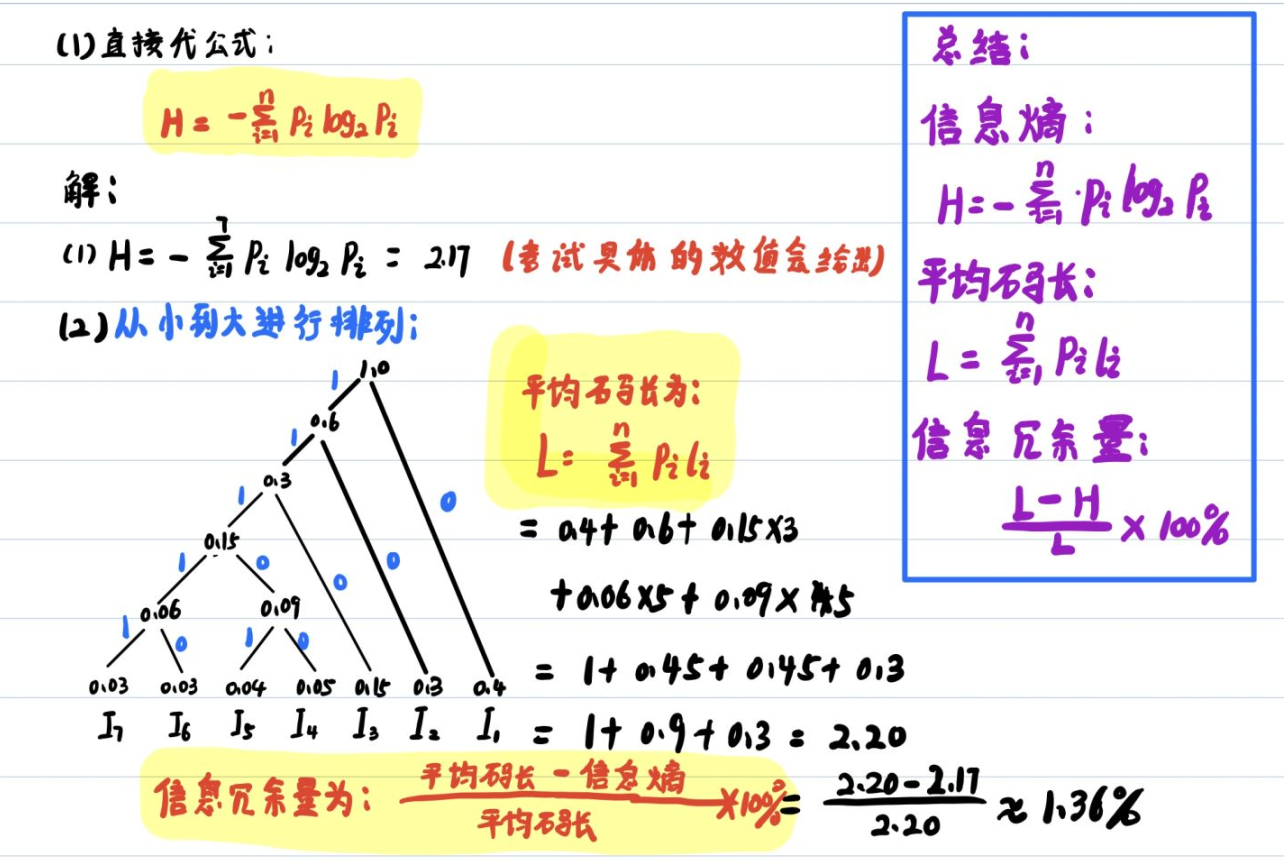 (1)直接代公式:
H = -∑_{i=1}^{n} P_i log₂ P_i
解:
(1) H = -∑_{i=1}^{7} P_i log₂ P_i = 2.17 (考试具体的数值会给出)
(2)从小到大进行排列:
1.0
1
0.6
1
0.3
1 0
0.15
1 0 0 0
0.06 0.09
1 0 1 0
0.03 0.03 0.04 0.05 0.15 0.3 0.4
I₇ I₆ I₅ I₄ I₃ I₂ I₁
平均码长为:
L = ∑_{i=1}^{n} P_i l_i
= 0.4 + 0.6 + 0.15×3
+0.06×5 + 0.09×5
= 1 + 0.45 + 0.45 + 0.3
= 1 + 0.9 + 0.3 = 2.20
信息冗余量为: (平均码长 - 信息熵)/平均码长 ×100% = (2.20-2.17)/2.20 ≈ 1.36%
总结:
信息熵:
H = -∑_{i=1}^{n} P_i log₂ P_i
平均码长:
L = ∑_{i=1}^{n} P_i l_i
信息冗余量:
(L-H)/L × 100%